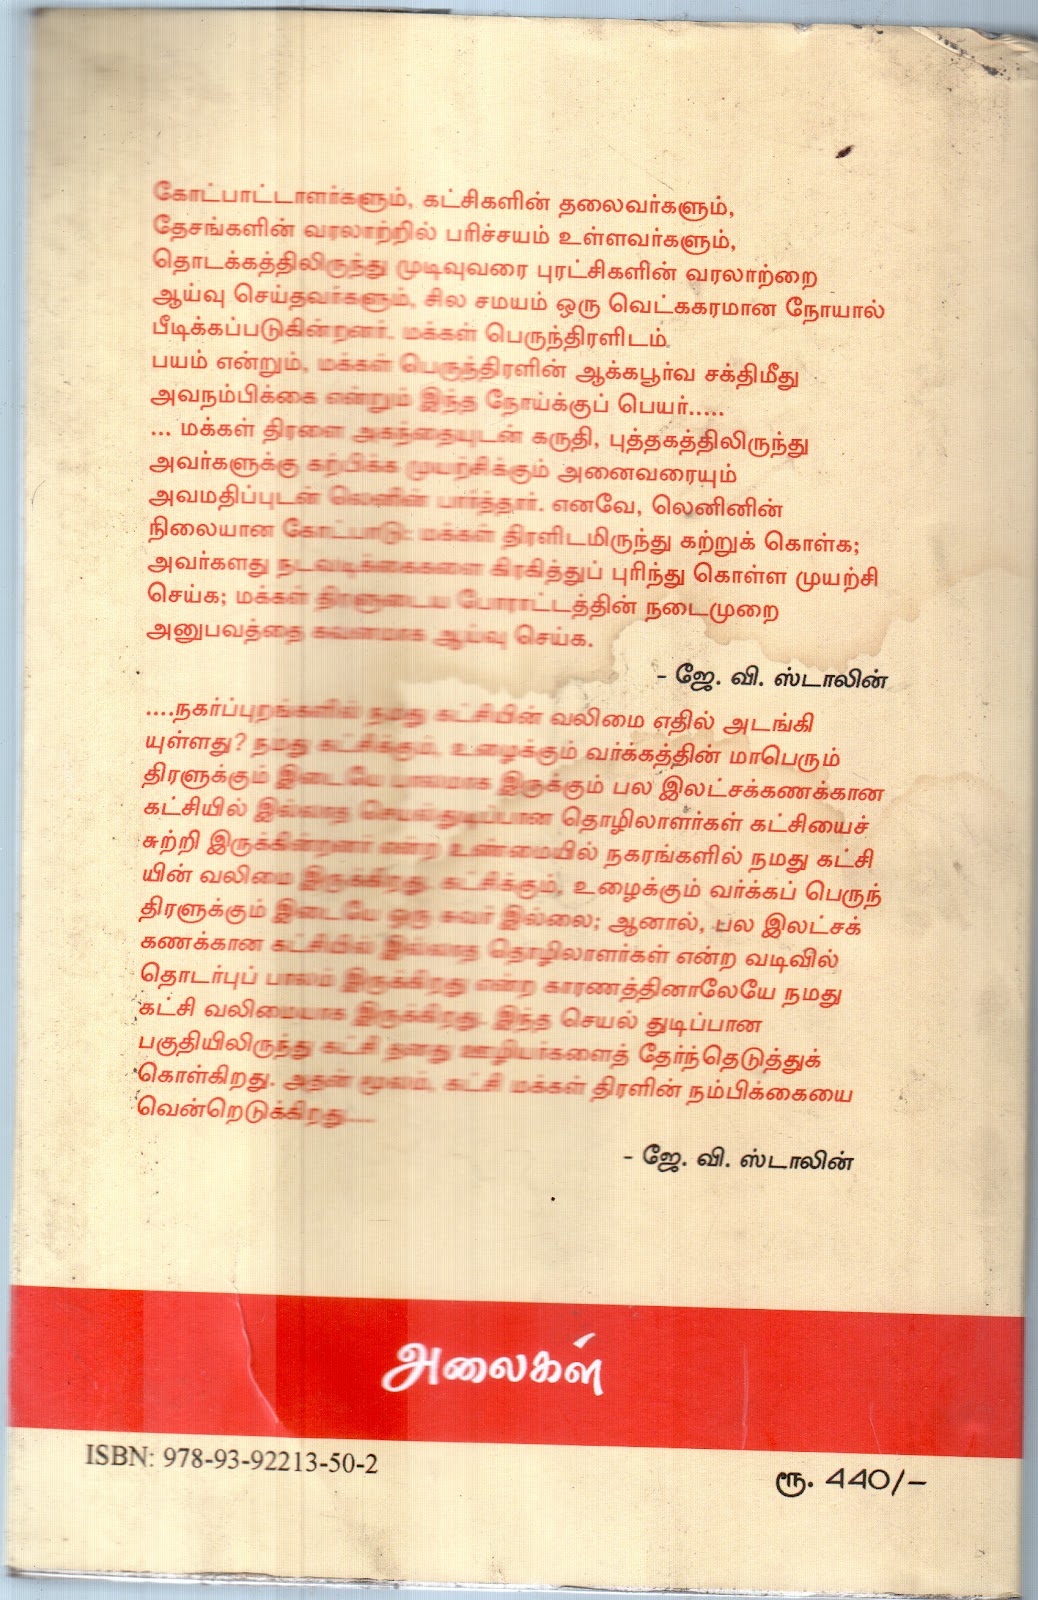 கோட்பாட்டாளர்களும், கட்சிகளின் தலைவர்களும்,
தேசங்களின் வரலாற்றில் பரிச்சயம் உள்ளவர்களும்,
தொடக்கத்திலிருந்து முடிவுவரை புரட்சிகளின் வரலாற்றை
ஆய்வு செய்தவர்களும், சில சமயம் ஒரு வெட்ககரமான நோயால்
பீடிக்கப்படுகின்றனர். மக்கள் பெருந்திரளிடம்
பயம் என்றும், மக்கள் பெருந்திரளின் ஆக்கபூர்வ சக்திமீது
அவநம்பிக்கை என்றும் இந்த நோய்க்குப் பெயர்.....
... மக்கள் திரளை அகந்தையுடன் கருதி, புத்தகத்திலிருந்து
அவர்களுக்கு கற்பிக்க முயற்சிக்கும் அனைவரையும்
அவமதிப்புடன் லெனின் பார்த்தார். எனவே, லெனினின்
நிலையான கோட்பாடு: மக்கள் திரளிடமிருந்து கற்றுக் கொள்க;
அவர்களது நடவடிக்கைகளை கிரகித்துப் புரிந்து கொள்ள முயற்சி
செய்க; மக்கள் திரளுடைய போராட்டத்தின் நடைமுறை
அனுபவத்தை கவனமாக ஆய்வு செய்க.
- ஜே. வி. ஸ்டாலின்
....நகர்ப்புறங்களில் நமது கட்சியின் வலிமை எதில் அடங்கி
யுள்ளது? நமது கட்சிக்கும், உழைக்கும் வர்க்கத்தின் மாபெரும்
திரளுக்கும் இடையே பாலமாக இருக்கும் பல இலட்சக்கணக்கான
கட்சியில் இல்லாத செயல்துடிப்பான தொழிலாளர்கள் கட்சியைச்
சுற்றி இருக்கின்றனர் என்ற உண்மையில் நகரங்களில் நமது கட்சி
யின் வலிமை இருக்கிறது. கட்சிக்கும், உழைக்கும் வர்க்கப் பெருந்
திரளுக்கும் இடையே ஒரு சுவர் இல்லை; ஆனால், பல இலட்சக்
கணக்கான கட்சியில் இல்லாத தொழிலாளர்கள் என்ற வடிவில்
தொடர்புப் பாலம் இருக்கிறது என்ற காரணத்தினாலேயே நமது
கட்சி வலிமையாக இருக்கிறது. இந்த செயல் துடிப்பான
பகுதியிலிருந்து கட்சி தனது ஊழியர்களைத் தேர்ந்தெடுத்துக்
கொள்கிறது. அதன் மூலம், கட்சி மக்கள் திரளின் நம்பிக்கையை
வென்றெடுக்கிறது....
- ஜே. வி. ஸ்டாலின்
அலைகள்
ISBN: 978-93-92213-50-2
ரூ. 440/-